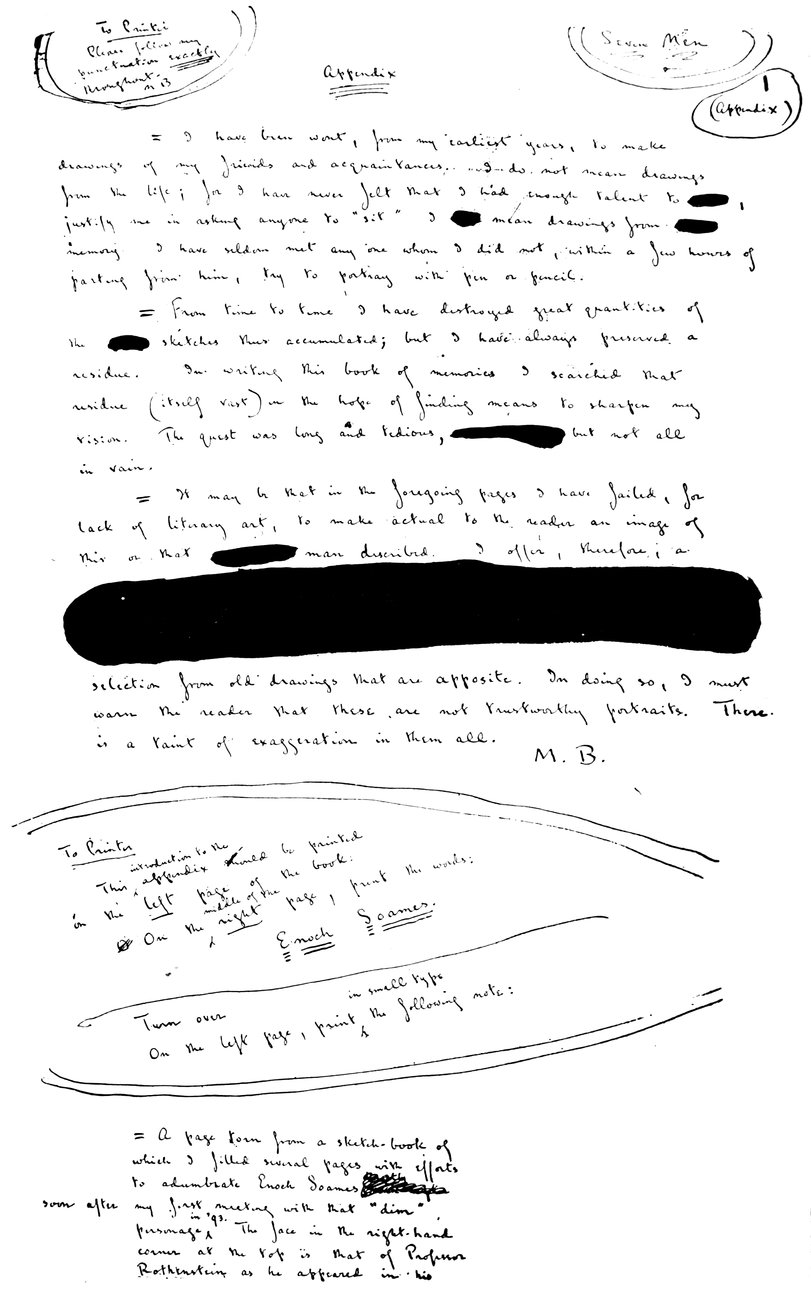 To Printer
Please follow my
punctuation exactly
throughout.
MB
Seven Men
1
(Appendix)
Appendix
= I have been wont, from my earliest years, to make
drawings of my friends and acquaintances. I do not mean drawings
from the life; for I have never felt that I had enough talent to
justify me in asking anyone to "sit" I mean drawings from
memory I have seldom met any one whom I did not, within a few hours of
parting from him, try to portray with pen or pencil.
= From time to time I have destroyed great quantities of
the sketches thus accumulated; but I have always preserved a
residue. In writing this book of memories I searched that
residue (itself vast) in the hope of finding means to sharpen my
vision. The quest was long and tedious, but not all
in vain.
= It may be that in the foregoing pages I have failed, for
lack of literary art, to make actual to the reader an image of
this or that man described. I offer, therefore, a
selection from old drawings that are apposite. In doing so, I must
warn the reader that these are not trustworthy portraits. There
is a taint of exaggeration in them all.
M. B.
To Printer
This introduction to the appendix should be printed
on the left page of the book.
On the middle of the right page, print the words:
Enoch Soames.
Turn over
On the left page, print in small type the following note:
= A page torn from a sketch-book of
which I filled several pages with efforts
to adumbrate Enoch Soames
soon after my first meeting with that "dim"
personage, in '93. The face in the right-hand
corner at the top is that of Professor
Rothenstein as he appeared in his